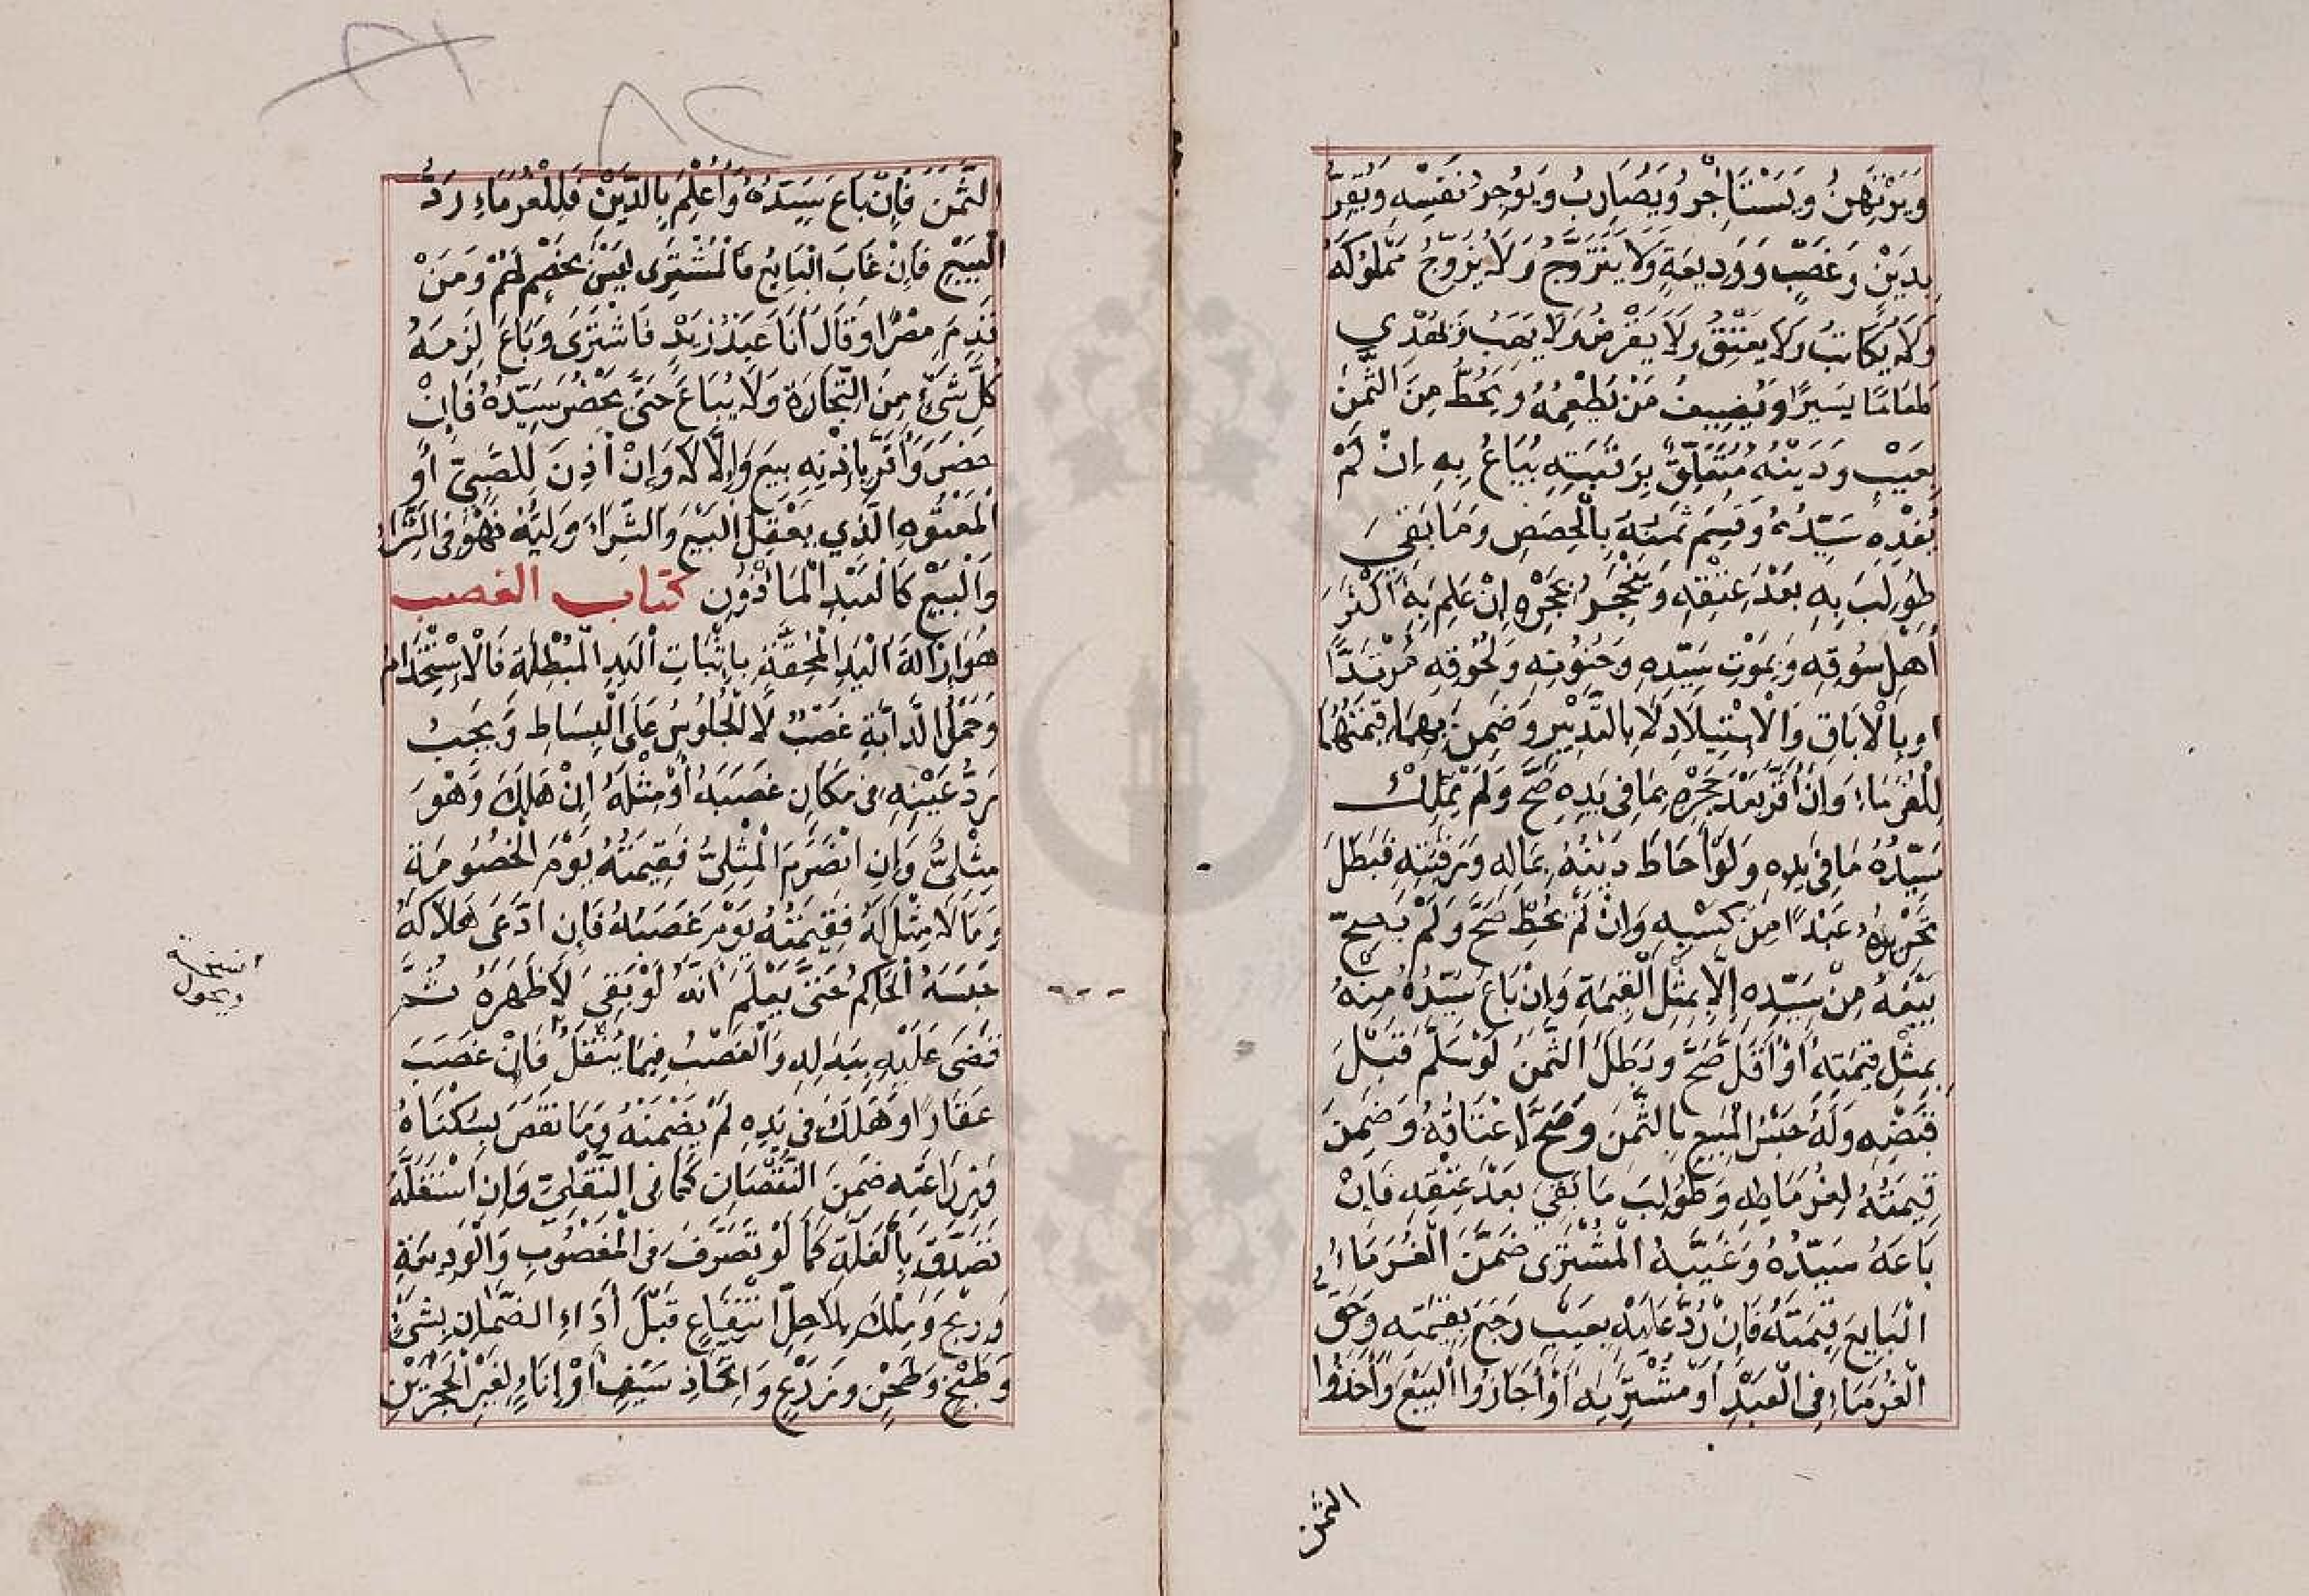 وَيَرْتَهِنُ وَيَسْتَأْجِرُ وَيُضَارِبُ وَيُوجِرُ نَفْسَهُ وَيُقِرُّ
بِدَيْنٍ وَغَصْبٍ وَوَدِيعَةٍ وَلَا يَتَزَوَّجُ وَلَا يُزَوِّجُ مَمْلُوكَهُ
وَلَا يُكَاتِبُ وَلَا يَعْتِقُ وَلَا يُقْرِضُ وَلَا يَهَبُ وَيُهْدِي
طَعَامًا يَسِيرًا وَيُضِيفُ مَنْ يُطْعِمُهُ وَيَحُطُّ مِنَ الثَّمَنِ
بِعَيْبٍ وَدَيْنُهُ مُتَعَلِّقٌ بِرَقَبَتِهِ يُبَاعُ بِهِ إِنْ لَمْ
يُفْدِهِ سَيِّدُهُ وَقُسِمَ ثَمَنُهُ بِالْحِصَصِ وَمَا بَقِيَ
طُولِبَ بِهِ بَعْدَ عِتْقِهِ وَيَنْحَجِرُ بِحَجْرِهِ إِنْ عَلِمَ بِهِ أَكْثَرُ
أَهْلِ سُوقِهِ وَبِمَوْتِ سَيِّدِهِ وَجُنُونِهِ وَلُحُوقِهِ مُرْتَدًّا
اوبِالْاِبَاقِ وَالْاِسْتِيلَادِ لَا بِالتَّدْبِيرِ وَضَمِنَ بِهِمَا قِيمَتَهُمَا
لِلْغُرَمَاءِ وَإِنْ أَقَرَّ بَعْدَ حَجْرِهِ بِمَا فِي يَدِهِ صَحَّ وَلَمْ يَمْلِكْ
سَيِّدُهُ مَا فِي يَدِهِ وَلَوْ أَحَاطَ دَيْنُهُ بِمَالِهِ وَرَقَبَتِهِ فَبَطَلَ
تَحْرِيرُهُ عَبْدًا مِنْ كَسْبِهِ وَاِنْ لَمْ يُحِطْ صَحَّ وَلَمْ يَصِحَّ
بَيْعُهُ مِنْ سَيِّدِهِ إِلَّا بِمِثْلِ الْقِيمَةِ وَإِنْ بَاعَ سَيِّدُهُ مِنْهُ
بِمِثْلِ قِيمَتِهِ أَوْ أَقَلَّ صَحَّ وَبَطَلَ الثَّمَنُ لَوْ سَلَّمَ قَبْلَ
قَبْضِهِ وَلَهُ حَبْسُ الْمَبِيعِ بِالثَّمَنِ وَصَحَّ اِعْتَاقُهُ وَضَمِنَ
قِيمَتَهُ لِغُرَمَائِهِ وَطُولِبَ مَا بَقِيَ بَعْدَ عِتْقِهِ فَاِنْ
بَاعَهُ سَيِّدُهُ وَغَيَّبَهُ الْمُشْتَرِى ضَمَّنَ الْغُرَمَاءُ
الْبَايِعَ قِيمَتَهُ فَاِنْ رُدَّ عَلَيْهِ بِعَيْبٍ رَجَعَ بِقِيمَتِهِ وَحَقُّ
الْغُرَمَاءِ فِى الْعَبْدِ أَوْ مُشْتَرِيَهُ أَوْ أَجَازُوا الْبَيْعَ وَأَخَذُوا
الثمن
الثَّمَنَ فَاِنْ بَاعَ سَيِّدُهُ وَأُعْلِمَ بِالدَّيْنِ فَلِلْغُرَمَاءِ رَدُّ
الْبَيْعِ فَاِنْ غَابَ الْبَايِعُ فَالْمُشْتَرِى لَيْسَ بِخَصْمٍ لَهُمْ وَمَنْ
قَدِمَ مِصْرًا وَقَالَ أَنَا عَبْدُ زَيْدٍ فَاشْتَرَى وَبَاعَ لَزِمَهُ
كُلُّ شَيْءٍ مِنَ التِّجَارَةِ وَلَا يُبَاعُ حَتَّى يَحْضُرَ سَيِّدُهُ فَاِنْ
حَضَرَ وَأَقَرَّ بِاِذْنِهِ بِيعَ وَاِلَّا لَا وَاِنْ أَذِنَ لِلصَّبِيِّ أَوِ
الْمَعْتُوهِ الَّذِي يَعْقِلُ الْبَيْعَ وَالشِّرَاءَ وَلِيُّهُ فَهُوَ فِى الشِّرَا
وَالْبَيْعِ كَالْعَبْدِ الْمَأْذُونِ كتاب الغصب
هُوَ اِزَالَةُ الْيَدِ الْمُحِقَّةِ بِاِثْبَاتِ الْيَدِ الْمُبْطِلَةِ فَالْاِسْتِخْدَامُ
وَحَمْلُ الدَّابَّةِ غَصْبٌ لَا الْجُلُوسُ عَلَى الْبِسَاطِ وَيَجِبُ
رَدُّ عَيْنِهِ فِى مَكَانِ غَصْبِهِ أَوْ مِثْلِهُ اِنْ هَلَكَ وَهْوَ
مِثْلِيٌّ وَاِنِ انْصَرَمَ الْمِثْلِيُّ فَقِيمَتُهُ يَوْمَ الْخُصُومَةِ
وَمَا لَا مِثْلَ لَهُ فَقِيمَتُهُ يَوْمَ غَصْبِهُ فَاِنِ ادَّعَى هَلَاكَهُ
حَبَسَهُ الْحَاكِمُ حَتَّى يَعْلَمَ أَنَّهُ لَوْ بَقِيَ لَأَظْهَرَهُ ثُمَّ
قَضَى عَلَيْهِ بِبَدَلِهِ وَالْغَصْبُ فِيمَا يُنْقَلُ فَاِنْ غَصَبَ
عَقَارًا وَهَلَكَ فِي يَدِهِ لَمْ يَضْمَنْهُ وَمَا نَقَصَ بِسُكْنَاهُ
وَزِرَاعَتِهِ ضَمِنَ النُّقْصَانَ كَمَا فِى النَّقْلِيِّ وَاِنِ اسْتَغَلَّهُ
تَصَدَّقَ بِالْغَلَّةِ كَمَا لَوْ تَصَرَّفَ فِى الْمَغْصُوبِ وَالْوَدِيعَةِ
وَرَبِحَ وَمَلَكَ بِلَا حِلِّ انْتِفَاعٍ قَبْلَ أَدَاءِ الضَّمَانِ بِشَيٍّ
وَطَبْخٍ وَطَحْنٍ وَزَرْعٍ وَاِتِّخَاذِ سَيْفٍ أَوْ اِنَاءٍ لِغَيْرِ الْحَجَرَيْنِ
ويحول